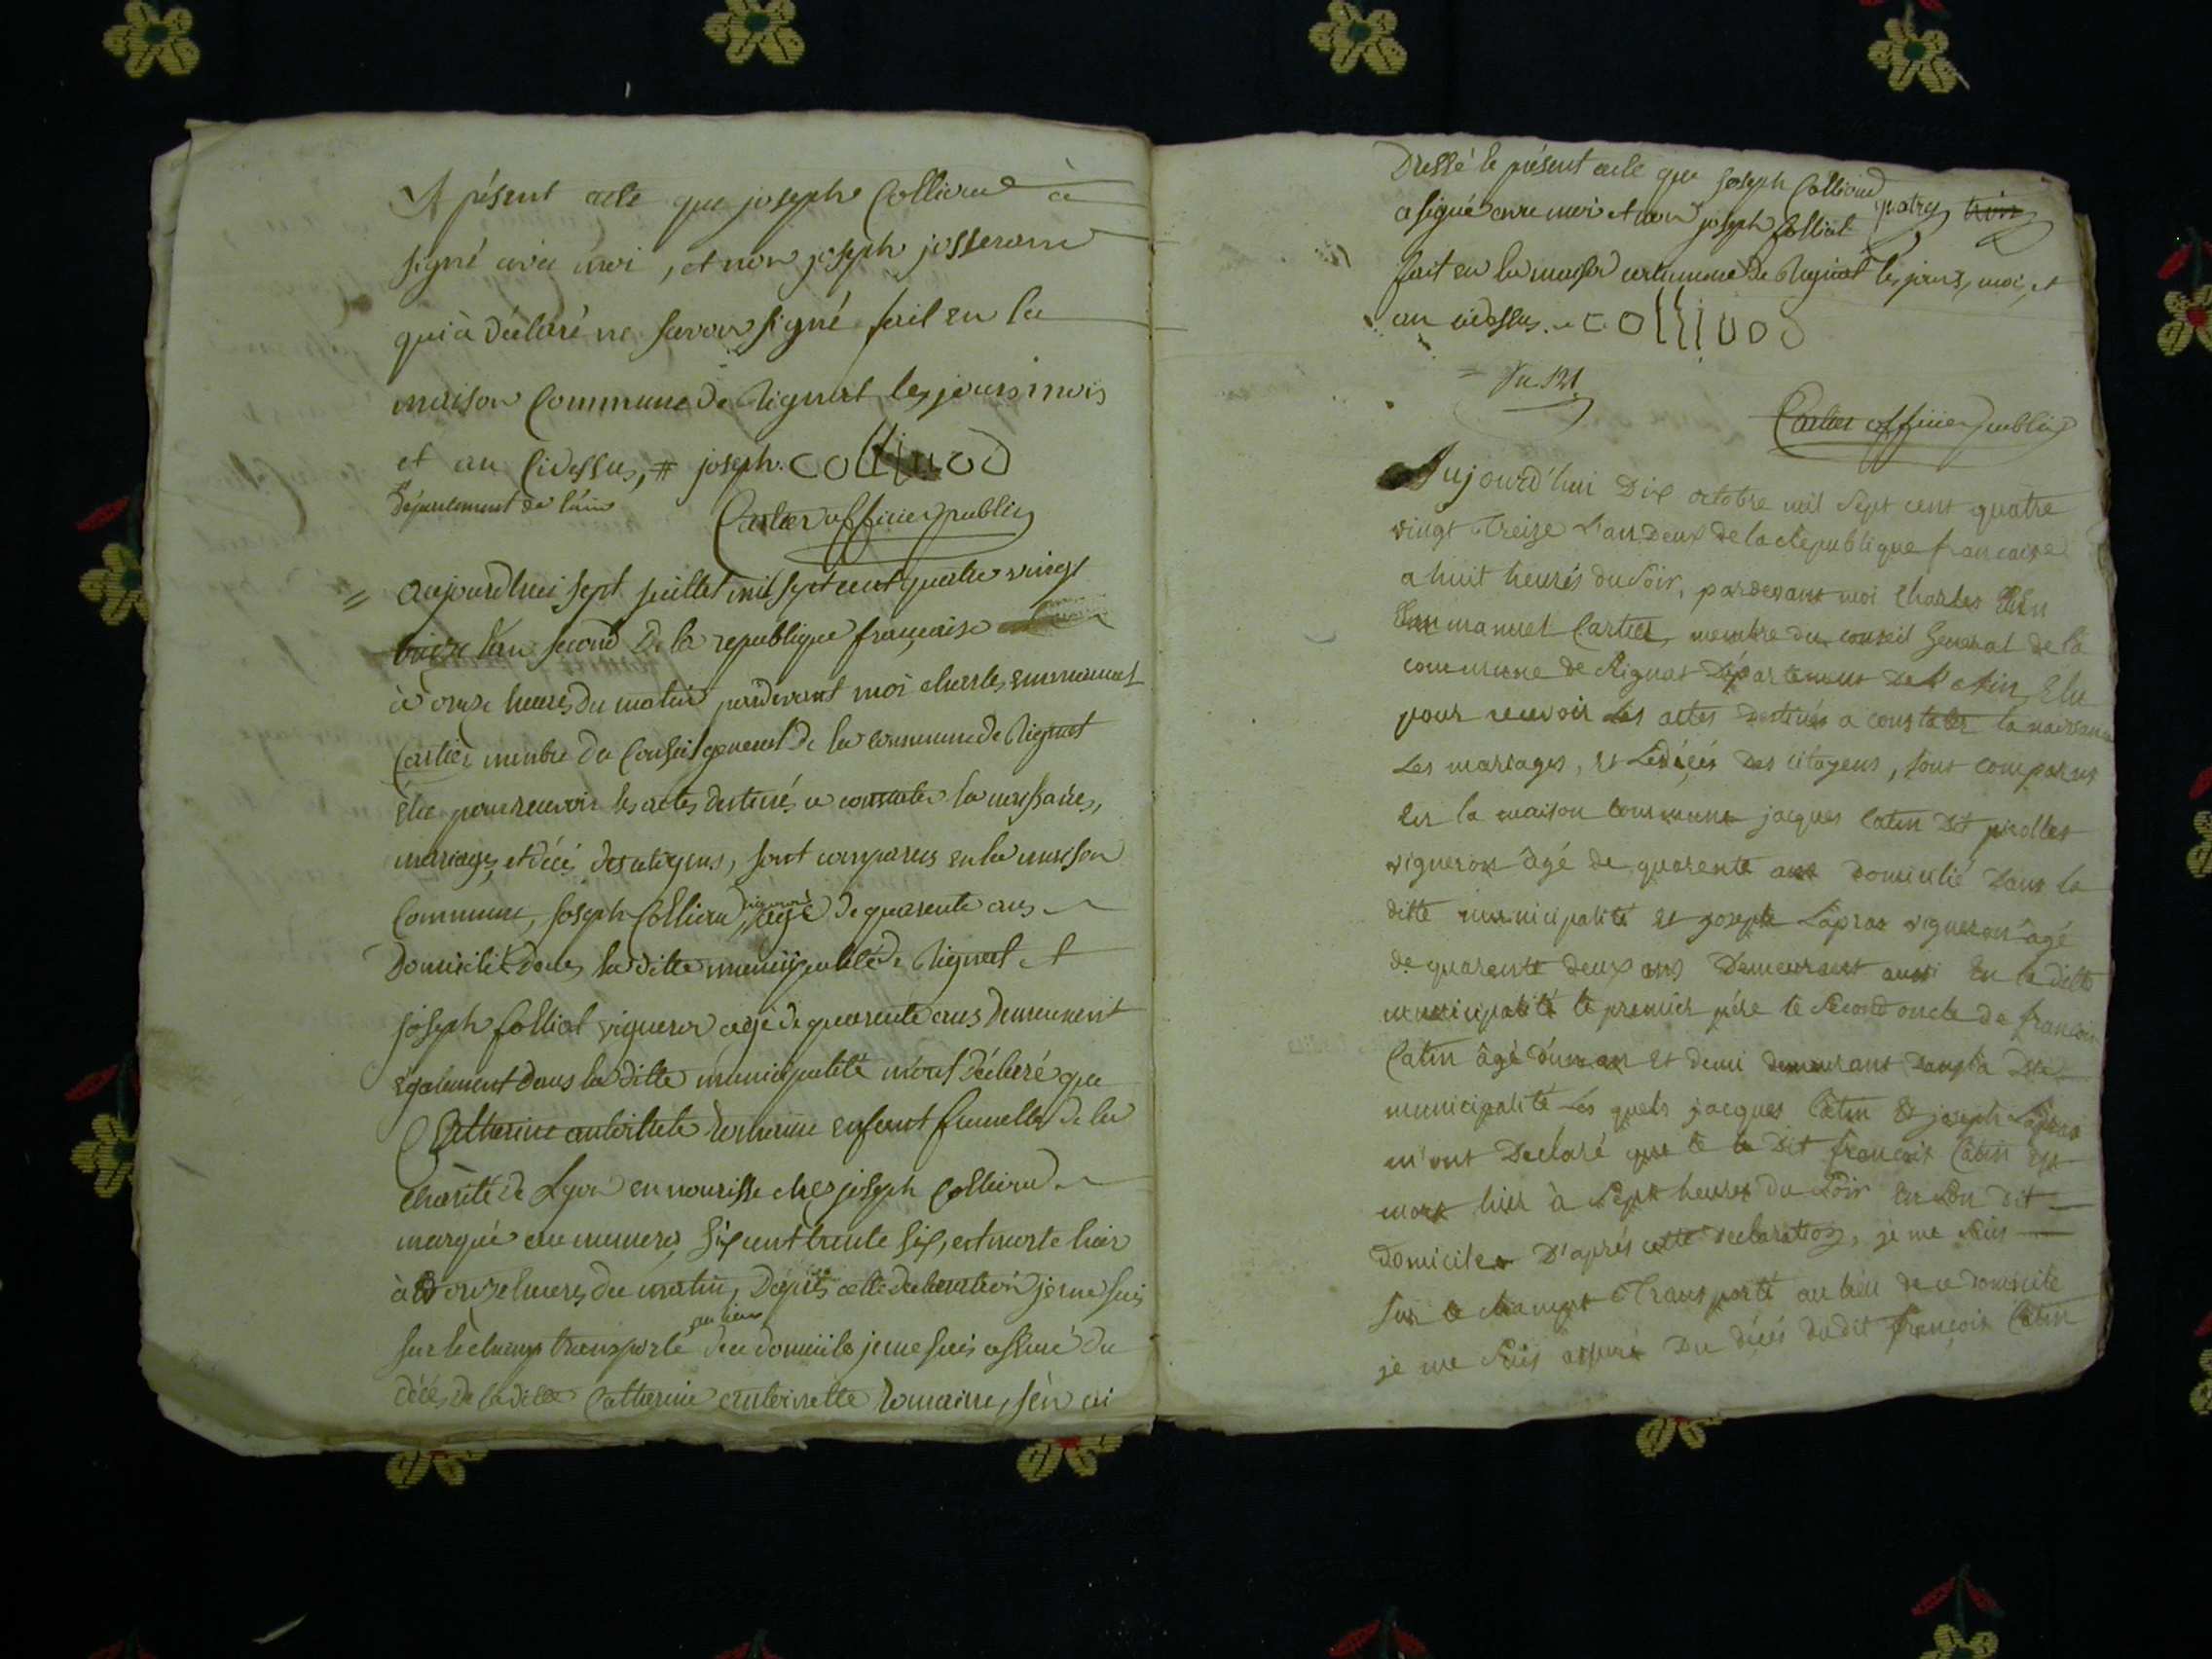 présent acte que joseph Collioud à
signé avec moi, et non joseph josserame
qui à déclaré ne savoir signé fait en la
maison Commune de Rignat les jours mois
et an Cidessus, # joseph. colliuod
département de l'ain
Cartier officier public
= aujourdhui sept juillet mil sept cent quatre vingt
treize l'an second De la republique française
à onze heures du matin pardevant moi charles emmanuel
Cartier membre du Conseil general De la commune de Rignat
élu pour recevoir les actes destinés a constater la naissances,
mariages, et décé, des citoyens, sont comparus en la maison
Commune, joseph Colliou vigneron agé de quarente ans
Domicilié dans la ditte municipalité de Rignat et
joseph Colliat vigneron agé de quarente ans demeurent
également dans la ditte municipalité m'ont déclaré que
Catherine antoinette Romaine enfant femelle de la
charité de Lyon en nourisse ches joseph Collioud
marqué au numero, six cent trente six, est morte hier
à onze heures du matin, D'après cette declaration je me suis
sur le champ transporté au lieu de ce domicile je me suis assuré du
décé, De la ditte Catherine antoinette Romaine, j'en ai
Dressé le présent acte que joseph Collioud
a signé avec moi et non joseph Colliat quatre trois
fait en la maison commune de Rignat les jours, mois, et
an cidessus. colliuod
Cartier officier public
Aujourd'hui Dix octobre mil sept cent quatre
vingt Treize L'an Deux de la Republique francaise
a huit heures du soir, pardevant moi Charles
Emmanuel Cartier, membre du conseil General de la
commune de Rignat Département De L'ain, Elu
pour recevoir les actes destinés a constater la naissance
Les mariages, et Ledécés Des Citoyens, sont comparus
En la maison commune jacques Catin Dit pirolles
vigneron âgé de quarente ans Domicilié Dans la
ditte municipalité et joseph Lapras vigneron âgé
de quarente deux ans Demeurant aussi En la ditte
municipalité le premier pére le second oncle de francois
Catin âgé d'un an et demi demeurant dans la dite
municipalité Les quels jacques Catin et joseph Lapras
m'ont Déclaré que le Dit francois Catin est
mort hier à sept heures du soir En son dit
domicile D'aprés cette declaration, je me suis
sur le champs Transporté au lieu de ce domicile
je me suis assuré Du décés dudit françois Catin